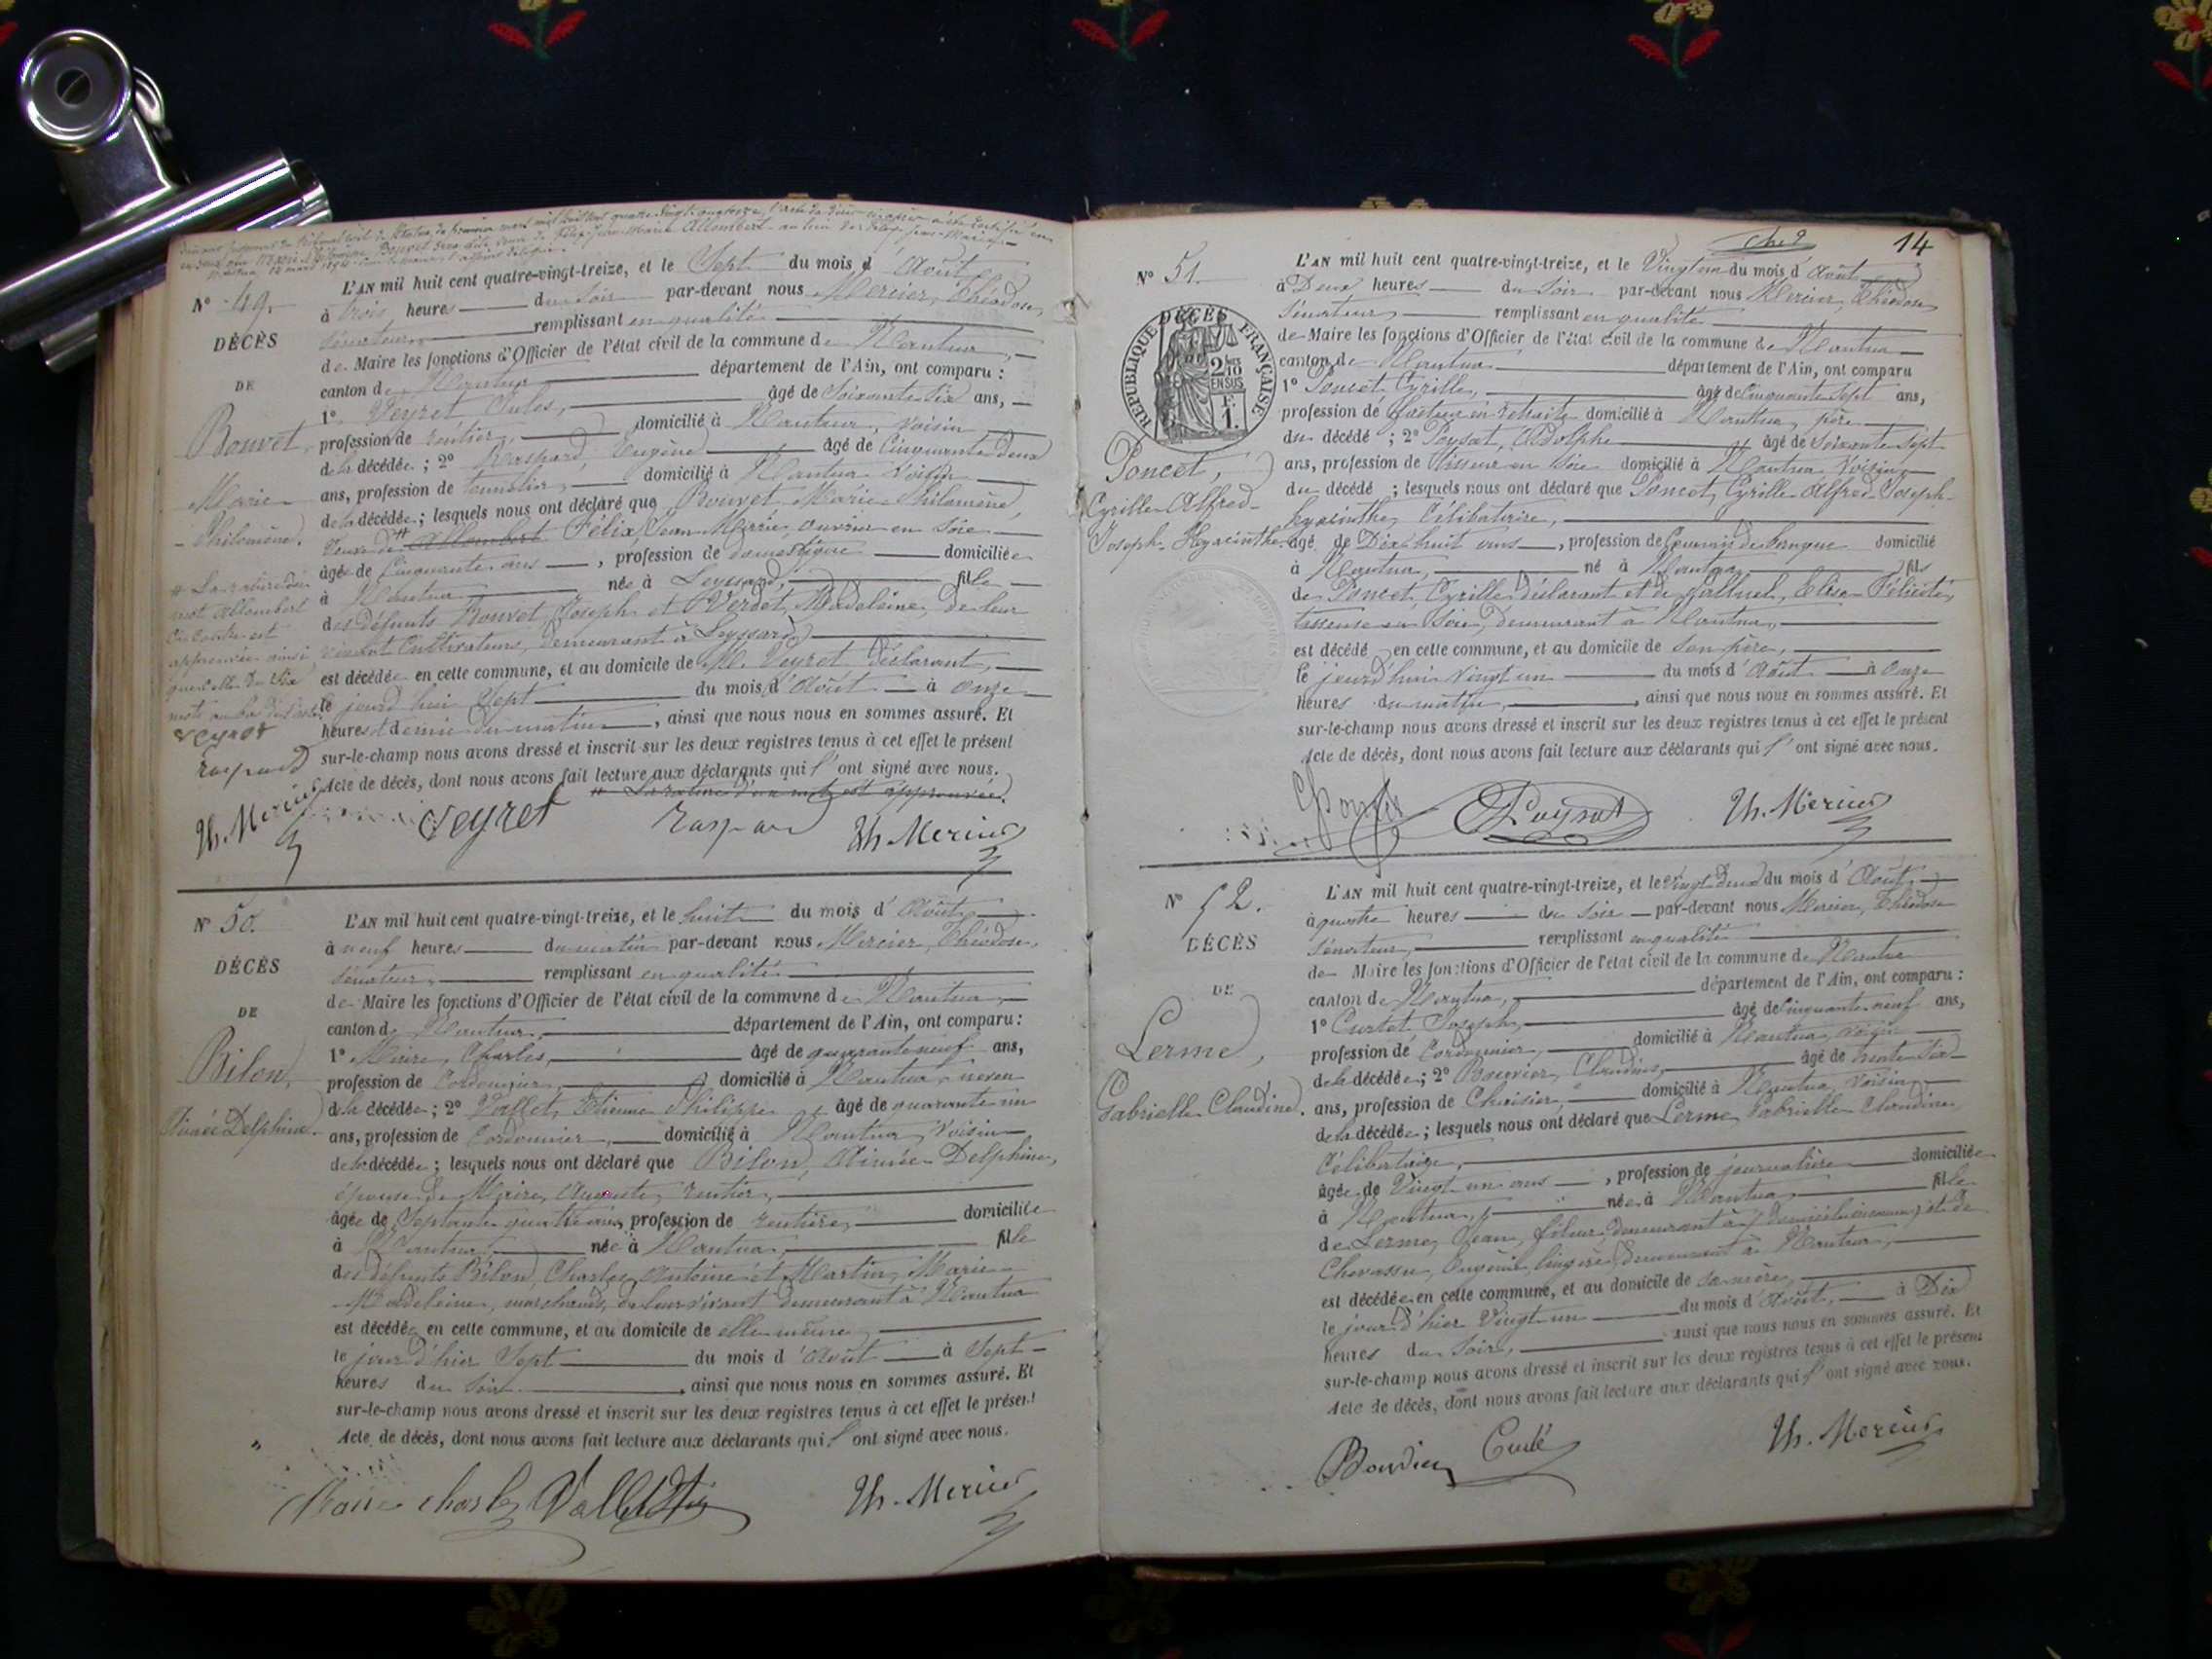 N° 49.
DÉCÈS
DE
Bouvet,
Marie-
-Philomène.
mot Allombert
ci-contre est
approuvée ainsi
que celle de six
Veyret
raspard
Th. Mercier
L'AN mil huit cent quatre-vingt-treize, et le Sept du mois d'Août
à trois heures du soir par-devant nous Mercier, Théodore,
sénateur, remplissant en qualité
de Maire les fonctions d'Officier de l'état civil de la commune de Nantua,
canton de Nantua département de l'Ain, ont comparu :
1° Veyret Jules, âgé de Soixante six ans,
profession de rentier, domicilié à Nantua, voisin
de la décédée ; 2° Raspard, Eugène âgé de Cinquante deux
ans, profession de tonnelier, domicilié à Nantua voisin
de la décédée ; lesquels nous ont déclaré que Bouvet Marie Philomène,
veuve de Allombert Félix, Jean-Marie, ouvrier en soie
âgée de Cinquante ans, profession de domestique domiciliée
à Nantua née à Leyssard, fille
des défunts Bouvet, Joseph et Verdet, Madeleine, de leur
vivant cultivateurs, demeurant à Leyssard
est décédée en cette commune, et au domicile de M. Veyret déclarant,
le jourd'hui Sept du mois d'Août à onze
heures et demie du matin, ainsi que nous nous en sommes assuré. Et
sur-le-champ nous avons dressé et inscrit sur les deux registres tenus à cet effet le présent
Acte de décès, dont nous avons fait lecture aux déclarants qui l'ont signé avec nous.
La rature d'un mot est approuvée.
Veyret raspard Th. Mercier
N° 50.
DÉCÈS
DE
Bilon,
Aimée Delphine.
L'AN mil huit cent quatre-vingt-treize, et le huit du mois d'Août
à neuf heures du matin par-devant nous Mercier, Théodore,
sénateur, remplissant en qualité
de Maire les fonctions d'Officier de l'état civil de la commune de Nantua,
canton de Nantua, département de l'Ain, ont comparu :
1° Maire, Charles, âgé de quarante neuf ans,
profession de Cordonnier, domicilié à Nantua, neveu
de la décédée ; 2° Vallet, Etienne Philippe âgé de quarante un
ans, profession de Cordonnier, domicilié à Nantua, voisin
de la décédée ; lesquels nous ont déclaré que Bilon, Aimée-Delphine,
épouse de Maire, Auguste, rentier,
âgée de Septante quatre ans, profession de rentière, domiciliée
à Nantua, née à Nantua, fille
des défunts Bilon, Charles Antoine et Martin, Marie-
Madeleine, marchands, de leur vivant demeurant à Nantua
est décédée en cette commune, et au domicile de elle même
le jour d'hier Sept du mois d'Août à Sept
heures du soir, ainsi que nous nous en sommes assuré. Et
sur-le-champ nous avons dressé et inscrit sur les deux registres tenus à cet effet le présent
Acte de décès, dont nous avons fait lecture aux déclarants qui l'ont signé avec nous.
Maire charles Vallet Th. Mercier
14
N° 51.
DÉCÈS
RÉPUBLIQUE FRANÇAISE
2/10
EN SUS
1.
Poncet,
Cyrille-Alfred-
Joseph-Hyacinthe.
L'AN mil huit cent quatre-vingt-treize, et le Vingt un du mois d'Août
à Deux heures du soir par-devant nous Mercier, Théodore
sénateur, remplissant en qualité
de Maire les fonctions d'Officier de l'état civil de la commune de Nantua
canton de Nantua département de l'Ain, ont comparu
1° Poncet Cyrille, âgé de Cinquante Sept ans,
profession de facteur en retraite domicilié à Nantua, père
du décédé ; 2° Peysat, Adolphe âgé de soixante sept
ans, profession de tisseur en soie domicilié à Nantua voisin
du décédé ; lesquels nous ont déclaré que Poncet, Cyrille Alfred Joseph-
hyacinthe, Célibataire,
âgé de Dix huit ans, profession de domicilié
à Nantua, né à Nantua fils
de Poncet, Cyrille déclarant et de Elisa Félicité,
tisseuse en soie, demeurant à Nantua,
est décédé en cette commune, et au domicile de son père,
le jourd'hui Vingt un du mois d'Août à onze
heures du matin, ainsi que nous nous en sommes assuré. Et
sur-le-champ nous avons dressé et inscrit sur les deux registres tenus à cet effet le présent
Acte de décès, dont nous avons fait lecture aux déclarants qui l'ont signé avec nous.
Th. Mercier
N° 52.
DÉCÈS
DE
Lerme,
Gabrielle Claudine.
L'AN mil huit cent quatre-vingt-treize, et le Vingt deux du mois d'Août
à quatre heures du soir par-devant nous Mercier, Théodore
sénateur, remplissant en qualité
de Maire les fonctions d'Officier de l'état civil de la commune de Nantua
canton de Nantua, département de l'Ain, ont comparu :
1° Curtet, Joseph, âgé de Cinquante neuf ans,
profession de Cordonnier, domicilié à Nantua, voisin
de la décédée ; 2° Bouvier, Claudius, âgé de trente six
ans, profession de Chaisier, domicilié à Nantua, voisin,
de la décédée ; lesquels nous ont déclaré que Lerme, Gabrielle Claudine,
Célibataire,
âgée de Vingt un ans, profession de journalière domiciliée
à Nantua, née à Nantua, fille
de Lerme, Jean, demeurant à et de
Chavassu, Eugénie, lingère, demeurant à Nantua,
est décédée en cette commune, et au domicile de sa mère,
le jour d'hier Vingt un du mois d'Août, à Dix
heures du soir, ainsi que nous nous en sommes assuré. Et
sur-le-champ nous avons dressé et inscrit sur les deux registres tenus à cet effet le présent
Acte de décès, dont nous avons fait lecture aux déclarants qui l'ont signé avec nous.
Th. Mercier